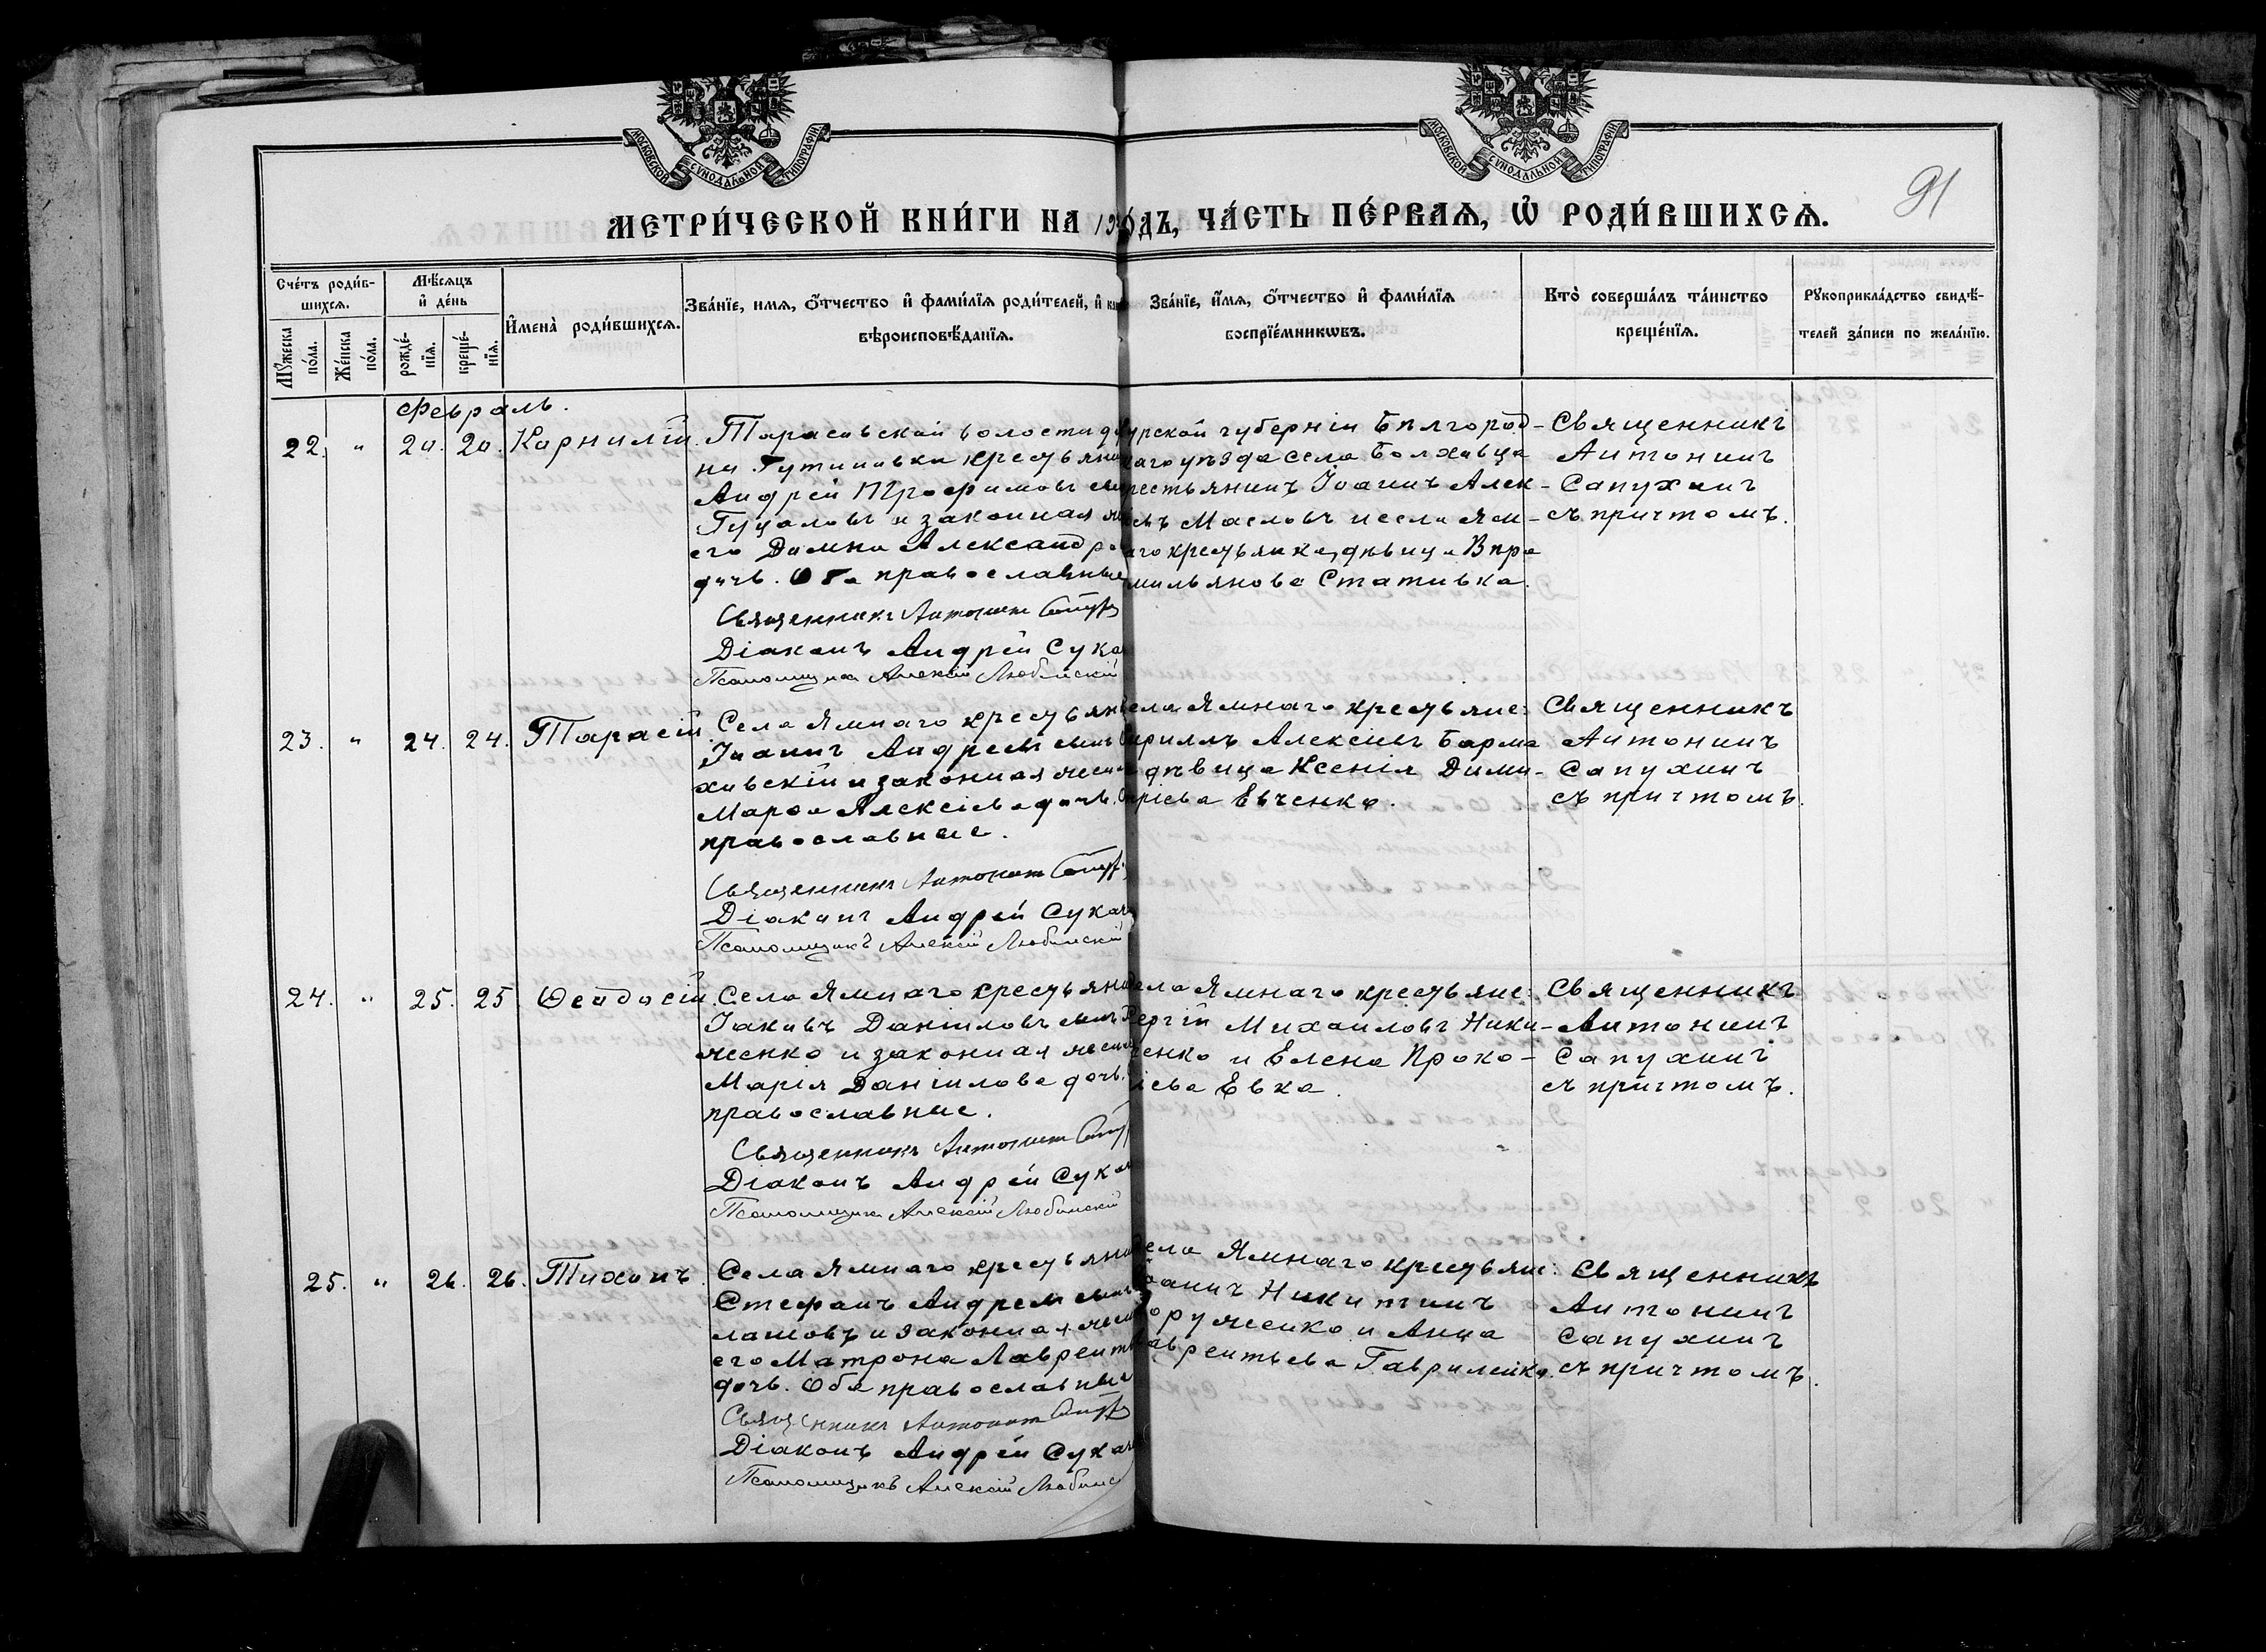 МОСКОВСКОЙ СѴНОДАЛЬНОЙ ТИПОГРАФІИ
МОСКОВСКОЙ СѴНОДАЛЬНОЙ ТИПОГРАФІИ
91
МЕТРИ́ЧЕСКОЙ КНИ́ГИ НА 19 го́дъ, ЧА́СТЬ ПЕ́РВАѦ, Ѽ РОДИ́ВШИХСѦ.
Сче́тъ роди́в-
шихсѧ.
Мꙋ́жеска по́ла.
Же́нска по́ла.
Мѣ́сѧцъ
и҆ де́нь
рожде́-
нїѧ.
креще́-
нїѧ.
И҆мена̀ роди́вшихсѧ.
Зва́нїе, имѧ, ѻ҆́тчество и҆ фами́лїѧ роди́телей, и҆
вѣроисповѣ́данїѧ.
Зва́нїе, и҆́мѧ, ѻ҆́тчество и҆ фами́лїѧ
воспрїе́мникѡвъ.
Кто̀ соверша́лъ та́инство
креще́нїѧ.
Рꙋкоприкла́дство свидѣ́-
телей за́писи по жела́нїю.
Февраль.
22. " 20. 20. Корнилій.
Тарасовской волости
крестьян
Андрей Трофимовъ
и законная
его Домна Александр
дочь. Оба православные
Священникъ Антонинъ
Діаконъ Андрей Сука
Псаломщикъ Алексій Любимскій
урской губерніи Бѣлгород-
наго уѣзда села Болховца
рестьянинъ Іоаннъ Алек-
евъ Масловъ и села Ям-
аго крестьянка, дѣвица
мильянова Стативка.
Священникъ
Антонинъ
Сапухинъ
съ причтомъ.
23. " 24. 24. Тарасій
Села Ямнаго крестьян
Іоаннъ Андреевъ
ховскій и законная жена
Марѳа Алексіева дочь.
православные.
Священникъ Антонинъ
Діаконъ Андрей Сукач
Псаломщикъ Алексій Любимскій
ела Ямнаго крестьяне:
Кириллъ Алексіевъ Барма
дѣвица Ксенія Дими-
ріева Евченко.
Священникъ
Антонинъ
Сапухинъ
съ причтомъ.
24. " 25. 25. Ѳеодосій
Села Ямнаго крестьян
Іаковъ Даніиловъ
женко и законная жена
Марія Даніилова дочь.
православные.
Священникъ Антонинъ
Діаконъ Андрей Сука
Псаломщикъ Алексій Любимскій
ела Ямнаго крестьяне:
ергій Михаиловъ Ники-
ченко и Елена Проко-
іева Евка.
Священникъ
Антонинъ
Сапухинъ
съ причтомъ.
25. " 26. 26. Тихонъ.
Села Ямнаго крестьян
Стефанъ Андреевъ
лашовъ и законная жена
его Матрона Лавренті
дочь. Оба православные
Священникъ Антонинъ
Діаконъ Андрей Сукач
Псаломщикъ Алексій Любимс
ела Ямнаго крестьяне:
оаннъ Никитинъ
оруженко и Анна
аврентьева Гавриленко.
Священникъ
Антонинъ
Сапухинъ
съ причтомъ.